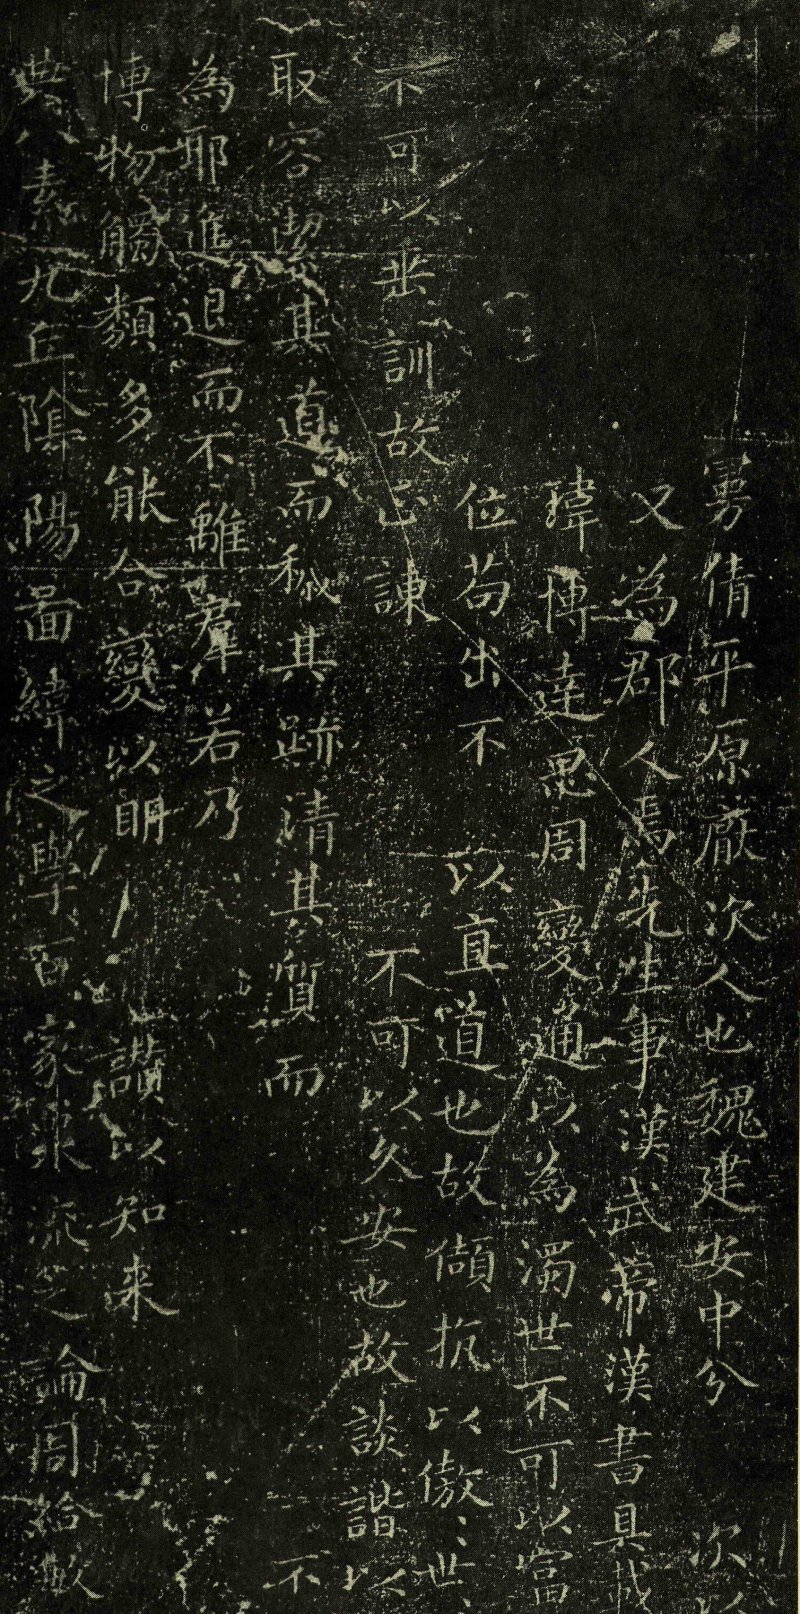 曼倩平原厭次人也魏建安中分次以
又為郡人焉先生事漢武帝漢書具載
瑋博達思周變通以為濁世不可以富
位苟出不以直道也故傾抗以傲世傲世
不可以垂訓故正諫不可以久安也故談諧以
取容潔其道而穢其跡清其質而不
為耶進退而不離羣若乃
博物觸類多能合變以明讚以知来
典八素九丘陰陽圖緯之學百家衆流之論周給敏